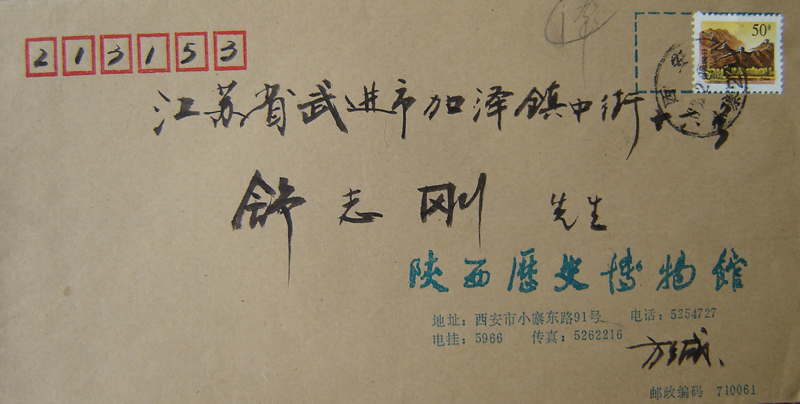 213153
50分
江苏省武进市加泽镇中街十六号
舒志刚 先生
陕西历史博物馆
地址：西安市小寨东路91号 电话：5254727
电挂：5966 传真：5262216
邮政编码 710061